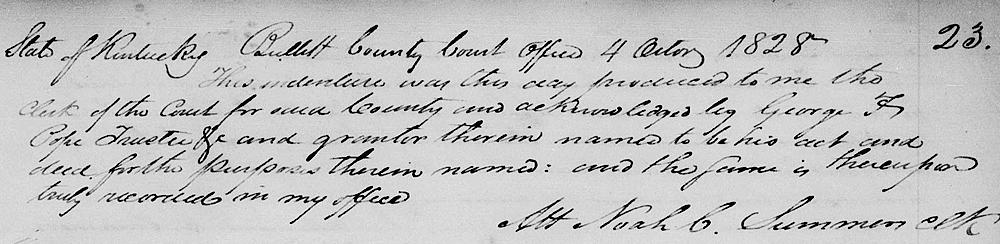 State of Kentucky Bullitt County Court Office 4 Octor 1828 23.
This indenture was this day produced to me the
Clerk of the Court for said County and acknowledged by George F
Pope Trustee &c and grantor therein named to be his act and
deed for the purposes therein named: and the same is thereupon
truly recorded in my office
Att Noah C. Summers clk